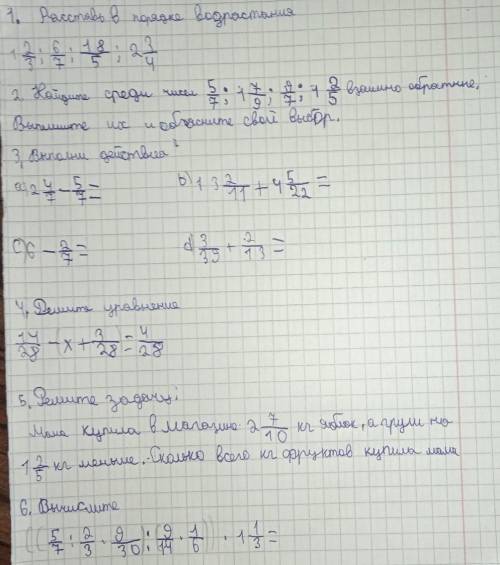 1. Расставь в порядке возрастания
1 2/3 ; 6/7 ; 18/5 ; 2 3/4
2. Найдите среди чисел 5/7 ; 1 7/9 ; 9/7 ; 1 2/5 взаимно обратные,
Выпишите их и объясните свой выбор.
3, Выполни действия:
a) 2 4/7 - 5/7 =
b) 13 2/11 + 4 5/22 =
c) 6 - 2/7 =
d) 3/39 + 2/13 =
4, Решите уравнение
14/28 - (x + 3/28) = 4/28
5, Решите задачу;
Мама купила в магазине 2 7/10 кг яблок, а груш на
1 2/5 кг меньше. Сколько всего кг фруктов купила мама
6. Вычислите
((5/7 : 2/3 · 9/30) : (9/14 · 1/6)) · 1 1/3 =